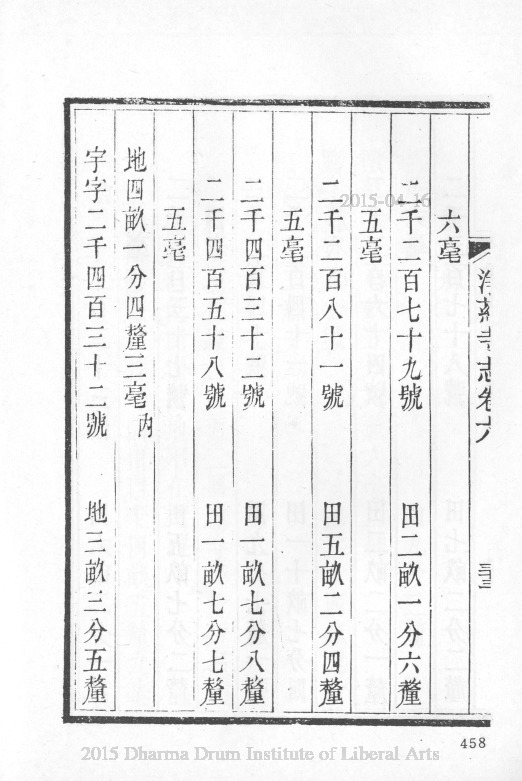 淨慈寺志卷六
六毫
二千二百七十九號 田二畝一分六釐
五毫
二千二百八十一號 田五畝二分四釐
五毫
二千四百三十二號 田一畝七分八釐
二千四百五十八號 田一畝七分七釐
五毫
地四畝一分四釐三毫內
宇字二千四百三十二號 地三畝三分五釐
458
2015-04-16
2015 Dharma Drum Institute of Liberal Arts